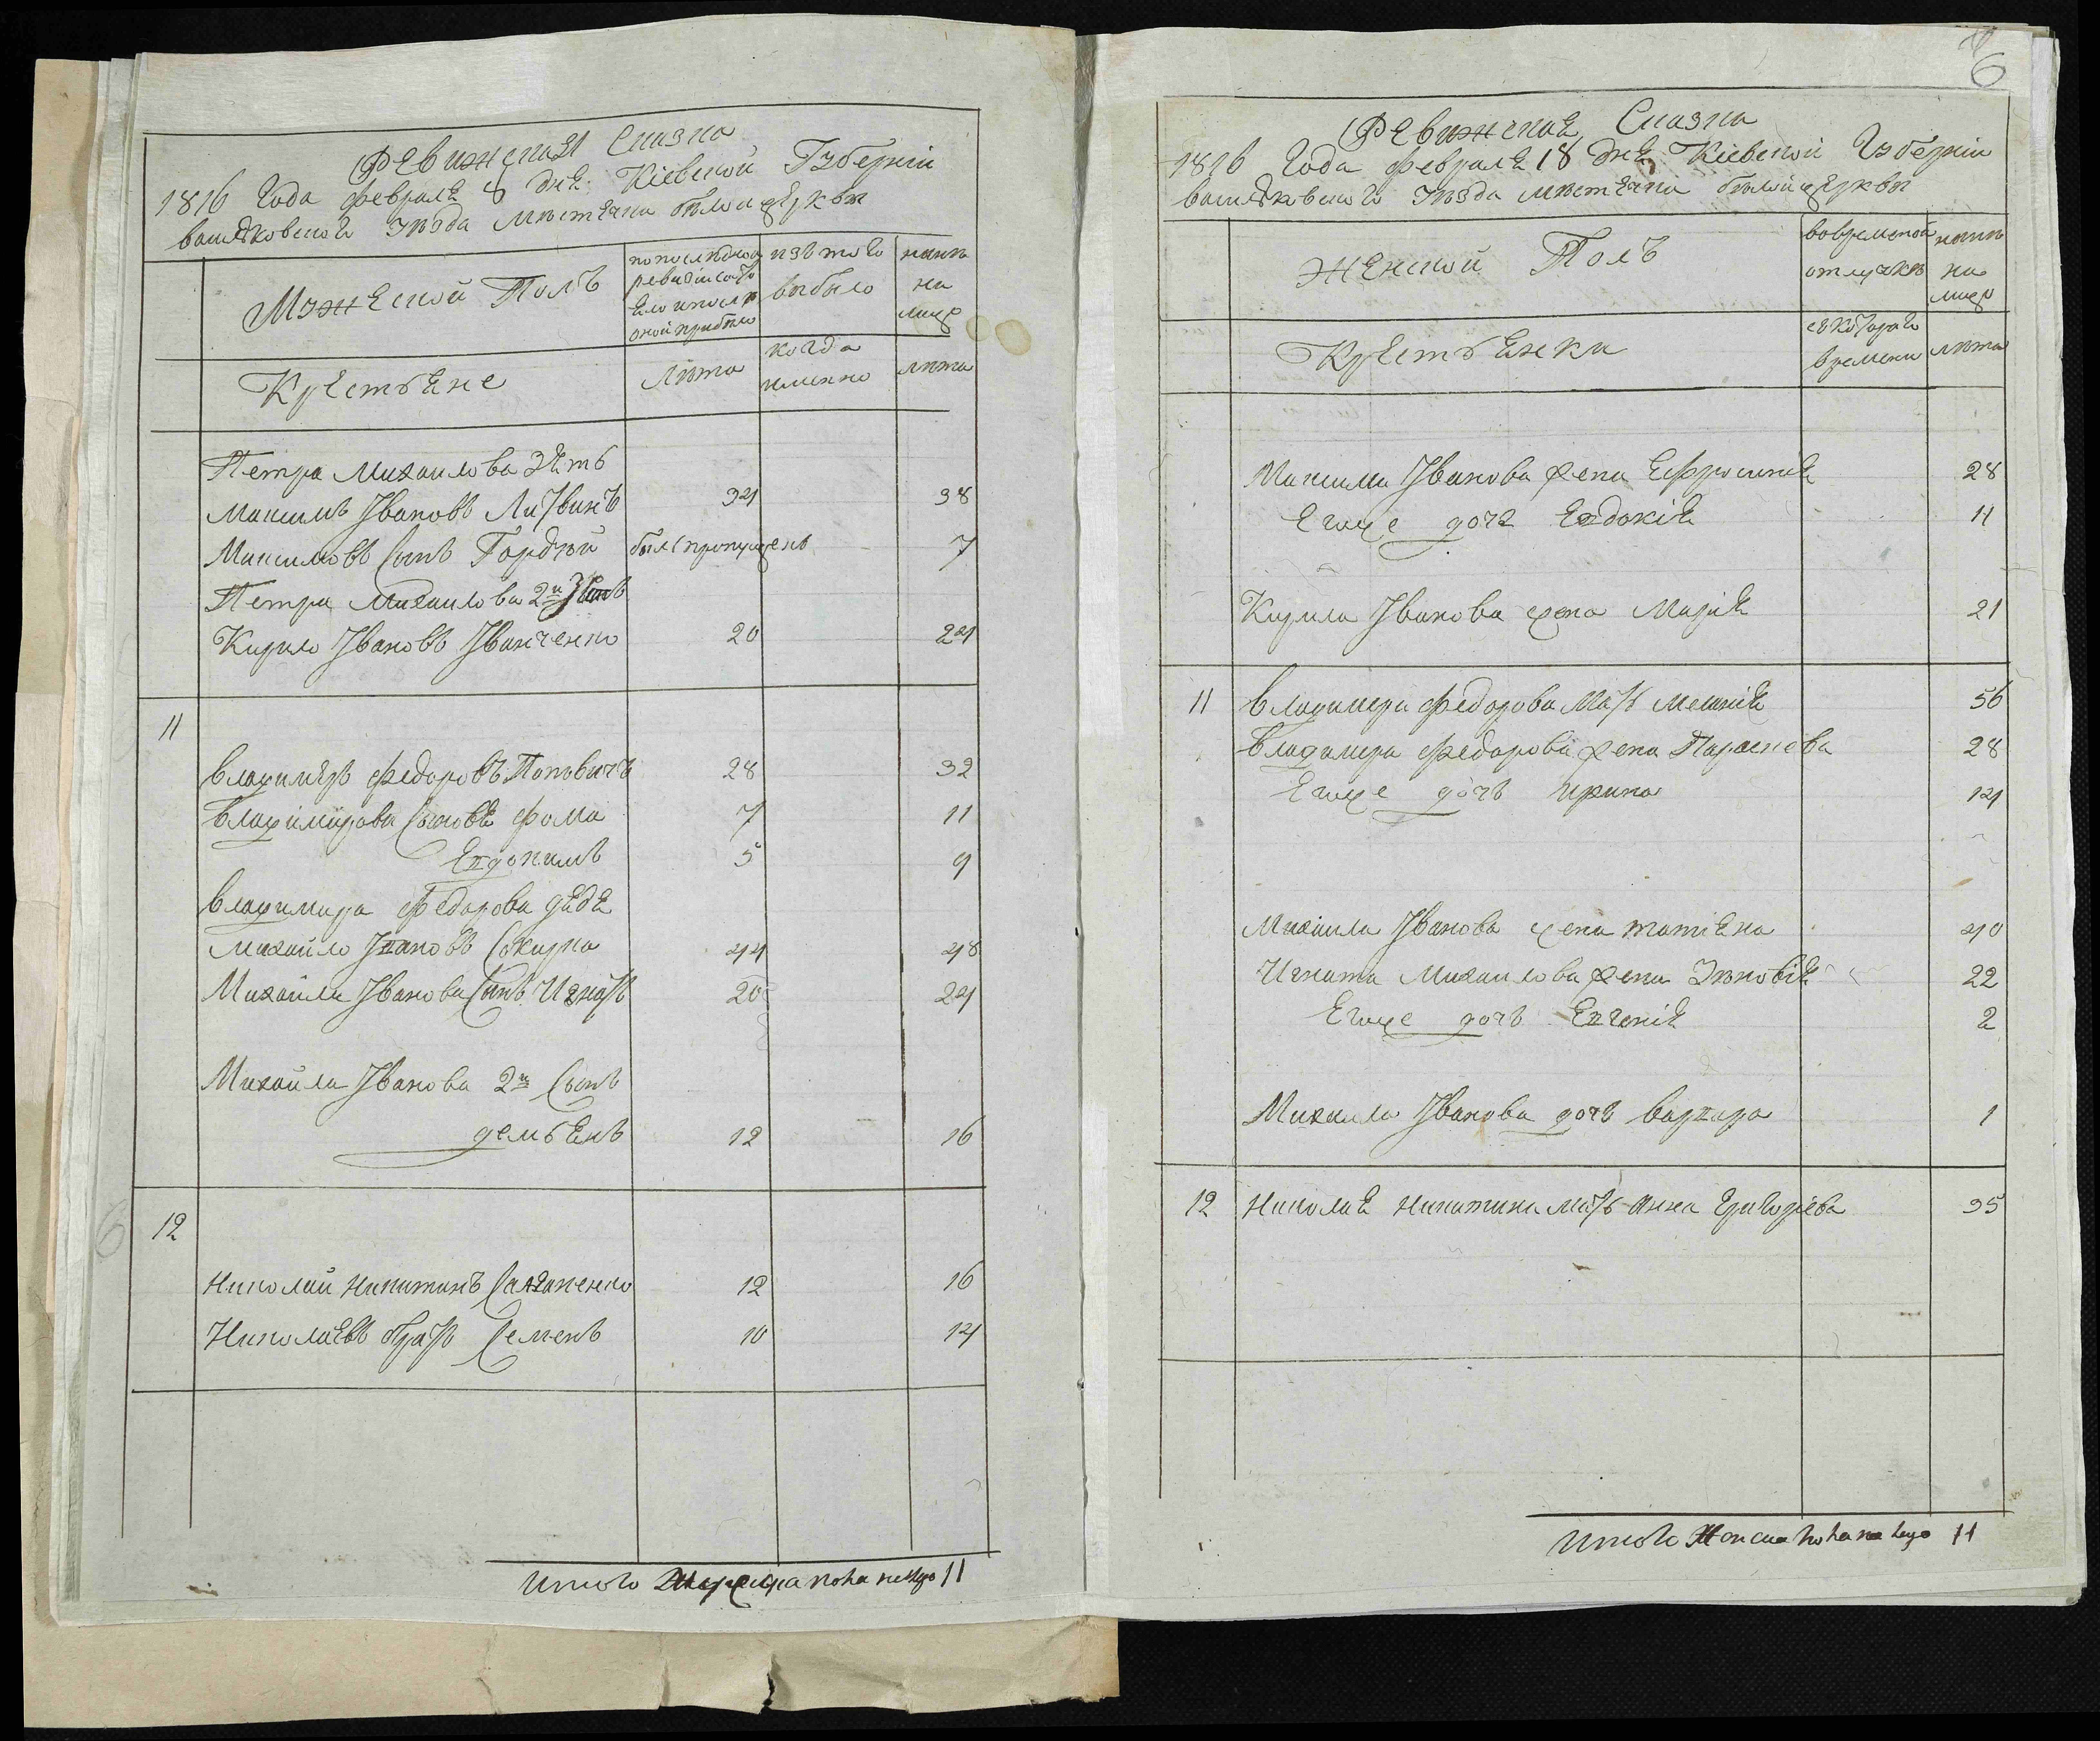 Ревижская Сказка
1816 Года февраля 8 дня Кіевской Губерніи
васильковского Уѣзда мѣстечка бѣлой церкви
Мужеской Полъ
по последней ревизіи состояло и после оной прибыло
изъ того выбыло
нынѣ на лицо
Крестьяне
Лѣта
когда именно
лѣта
Петра Михаилова зять
Максимъ Ивановъ Литвинъ 34 38
Максимовъ сынъ Гордѣй былъ пропущенъ 7
Петра Михаилова 2й зять
Кирило Ивановъ Иванченко 20 24
11
владимѣръ федоровъ Поповичъ 28 32
владимирова сыновя фома 7 11
Евдокимъ 5 9
владимира федорова дядя
Михайло Ивановъ Сокирка 44 48
Михайла Иванова сынъ Игнатъ 20 24
Михайла Иванова 2й сынъ
демьянъ 12 16
12
Николай Никитинъ 12 16
Николаевъ братъ Семенъ 10 14
Итого мужеска пола на лицо 11
6
6
Ревижская Сказка
1816 Года февраля 18 дня Кіевской Губерніи
васильковского Уѣзда мѣстечка бѣлой церкви
Женской Полъ
во временной отлучкѣ
нынѣ на лицо
Крестьянки
съ котораго времени
лѣта
Максима Иванова жена Ефросинія 28
Егоже дочь Евдокія 11
Кирила Иванова жена Марія 21
11 владимира федорова мать Меланія 56
владимира федорова жена Параскева 28
Егоже дочь ирина 14
Михаила Иванова жена татіяна 40
Игната Михаилова жена Зѣновія 22
Егоже дочь Евгенія 2
Михаила Иванова дочь варвара 1
12 Николая Никитина мать Анна Григоріева 35
Итого женска пола на лицо 11